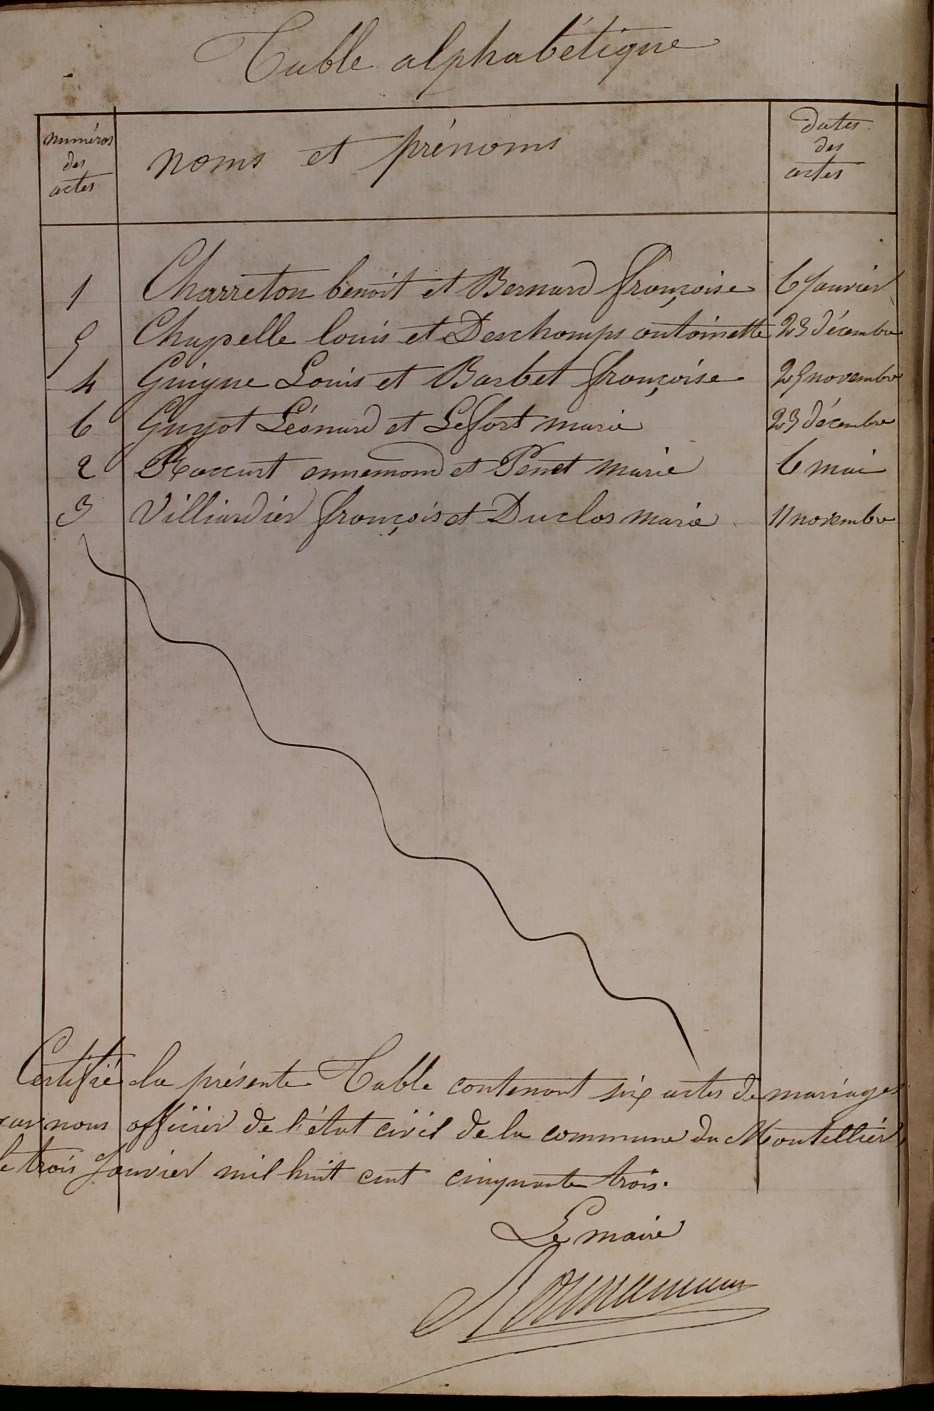 Table alphabétique
numéros des actes
noms et prénoms
dates des actes
1 Charreton benoit et Bernard françoise 6 Janvier
5 Chapelle louis et Deschamps antoinette 23 décembre
4 Guigue Louis et Barbet françoise 25 novembre
6 Guyot Léonard et Lefort marie 23 décembre
2 ennemond et Penet marie 6 mai
3 Villiardier françois et Duclos marie 11 novembre
Certifié la présente Table contenant six actes de mariages
par nous officier de l'état civil de la commune du Montellier
le trois Janvier mil huit cent cinquante trois.
Le maire